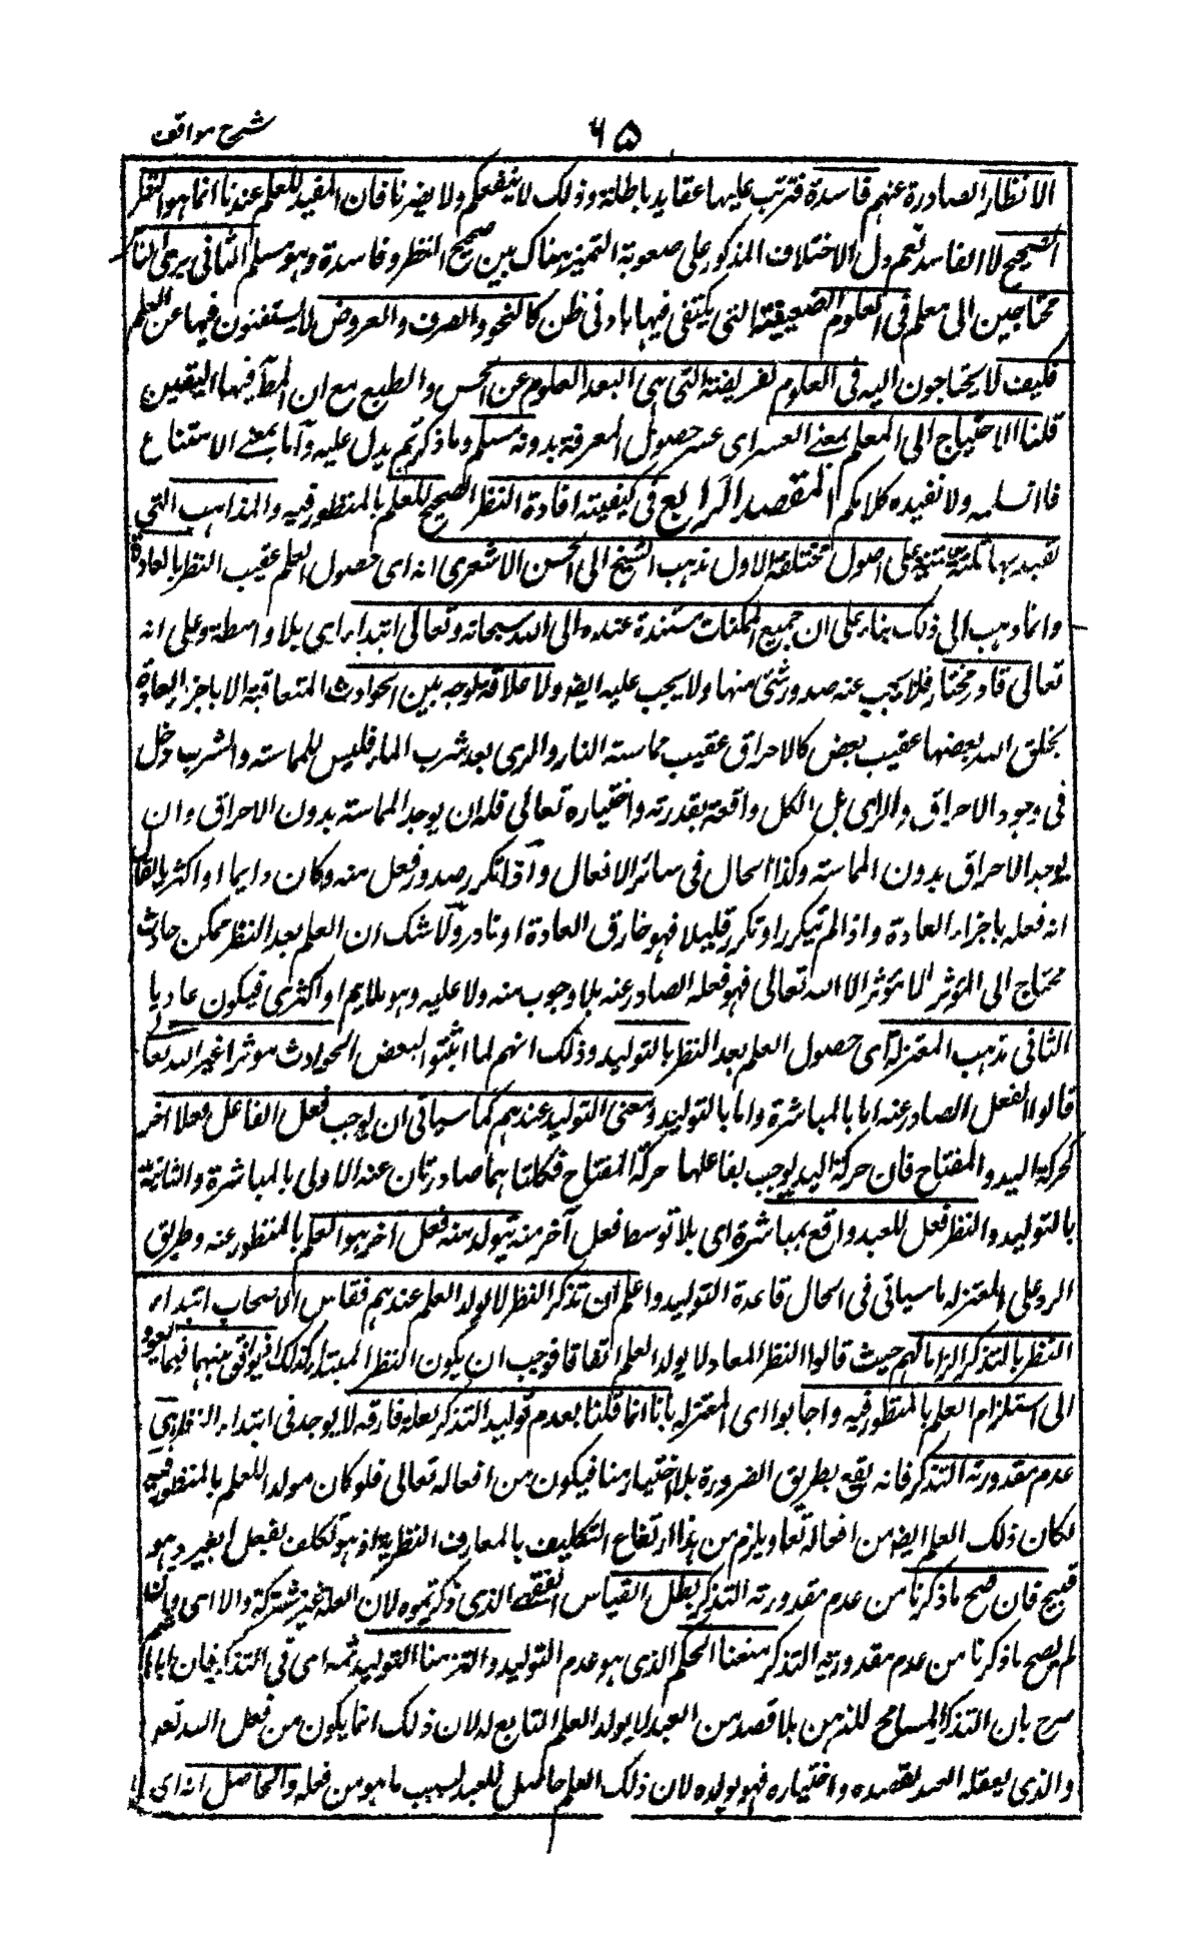 شرح مواقف
٦٥
الانظار الصادرة عنهم فاسدة فترتب عليها عقايد باطلة وذلك لا ينفعكم ولا يضرنا فان المفيد للعلم عندنا انما هو النظر
الصحيح لا الفاسد نعم دل الاختلاف المذكور على صعوبة التميز هناك بين صحيح النظر وفاسده وهو مسلم الثاني يرى النا
محتاجين الى معلم في العلوم الضعيفة التي يكتفى فيها بادنى ظن كالنحو والصرف والعروض لا يستغنون فيها عن المعلم
فكيف لا يحتاجون اليه في العلوم العريضة التي هي ابعد العلوم عن الحس والطبع مع ان المط فيها اليقين
قلنا الاحتياج الى المعلم بمعنى العسر اى عسر حصول المعرفة بدونه مسلم وما ذكرتم يدل عليه وأما بمعنى الامتناع
فلا نسلمه ولا نفيده كلامكم المقصد الرابع في كيفية افادة النظر الصحيح للعلم بالمنظور فيه والمذاهب التي
يعتد بها ثلثة مبنية على اصول مختلفة الاول مذهب الشيخ ابى الحسن الاشعرى انه اى حصول العلم عقيب النظر بالعادة
وانما ذهب الى ذلك بناء على ان جميع الممكنات مستندة عنده الى الله سبحانه وتعالى ابتداء اى بلا واسطة وعلى انه
تعالى قادر مختار فلا يجب عنه صدور شئ منها ولا يجب عليه ايضا ولا علاقة بوجه بين الحوادث المتعاقبة الا باجراء العادة
بخلق الله بعضها عقيب بعض كالاحراق عقيب مماسته النار والرى بعد شرب الماء فليس للمماسته والشرب دخل
في وجود الاحراق والرى بل الكل واقعة بقدرته واختياره تعالى فله ان يوجد المماسته بدون الاحراق وان
يوجد الاحراق بدون المماسته وكذا الحال في سائر الافعال وآذا تكرر صدور فعل منه وكان دايما او اكثريا يقال
انه فعله باجراء العادة واذا لم يتكرر او تكرر قليلا فهو خارق العادة او نادر ولا شك ان العلم بعد النظر ممكن حادث
محتاج الى المؤثر ولا مؤثر الا الله تعالى فهو فعله الصادر عنه بلا وجوب منه ولا عليه وهو دايم او اكثرى فيكون عاديا
الثاني مذهب المعتزلة اى حصول العلم بعد النظر بالتوليد وذلك انهم لما اثبتوا لبعض الحوادث موثرا غير الله تعا
قالوا الفعل الصادر عنه اما بالمباشرة واما بالتوليد ومعنى التوليد عندهم كما سياتى ان يوجب فعل الفاعل فعلا اخر
كحركة اليد والمفتاح فان حركة اليد يوجب لفاعلها حركة المفتاح فكلتاهما صادرتان عنه الاولى بالمباشرة والثانية
بالتوليد والنظر فعل للعبد واقع بمباشرته اى بلا توسط فعل آخر منه يتولد منه فعل اخر هو العلم بالمنظور عنه وطريق
الرد على المعتزله ما سياتى في ابطال قاعدة التوليد واعلم ان تذكر النظر لا يولد العلم عندهم فقاس الاصحاب ابتداء
النظر بالتذكر الزاما لهم حيث قالوا النظر المعاد لا يولد العلم اتفاقا فوجب ان يكون النظر المبتدا كذلك اذ لا فرق بينهما فيما يعود
الى استلزام العلم بالمنظور فيه واجابوا اى المعتزله بانا انما قلنا بعدم توليد التذكر لعلة فارقه لا يوجد في ابتداء النظر هى
عدم مقدورية التذكر فانه يقع بطريق الضرورة بلا اختيار منا فيكون من افعاله تعالى فلو كان مولدا للعلم بالمنظور فيه
لكان ذلك العلم ايضا من افعاله تعا ويلزم من هذا ارتفاع التكليف بالمعارف النظرية اذ هو تكليف بفعل الغير وهو
قبيح فان صح ما ذكرنا من عدم مقدورية التذكر بطل القياس الفقهى الذى ذكرتموه لان العلة غير مشتركة والا اى وان
لم يصح ما ذكرنا من عدم مقدورية التذكر منعنا الحكم الذى هو عدم التوليد والتزمنا التوليد ثمه اى في التذكر فان ابا
صرح بان التذكر السانح للذهن بلا قصد من العبد لا يولد العلم التابع له لان ذلك انما يكون من فعل الله تعه
والذى يفعله العبد بقصده واختياره فهو يولده لان ذلك العلم حاصل للعبد بسبب ما هو من فعله والحاصل انه اى